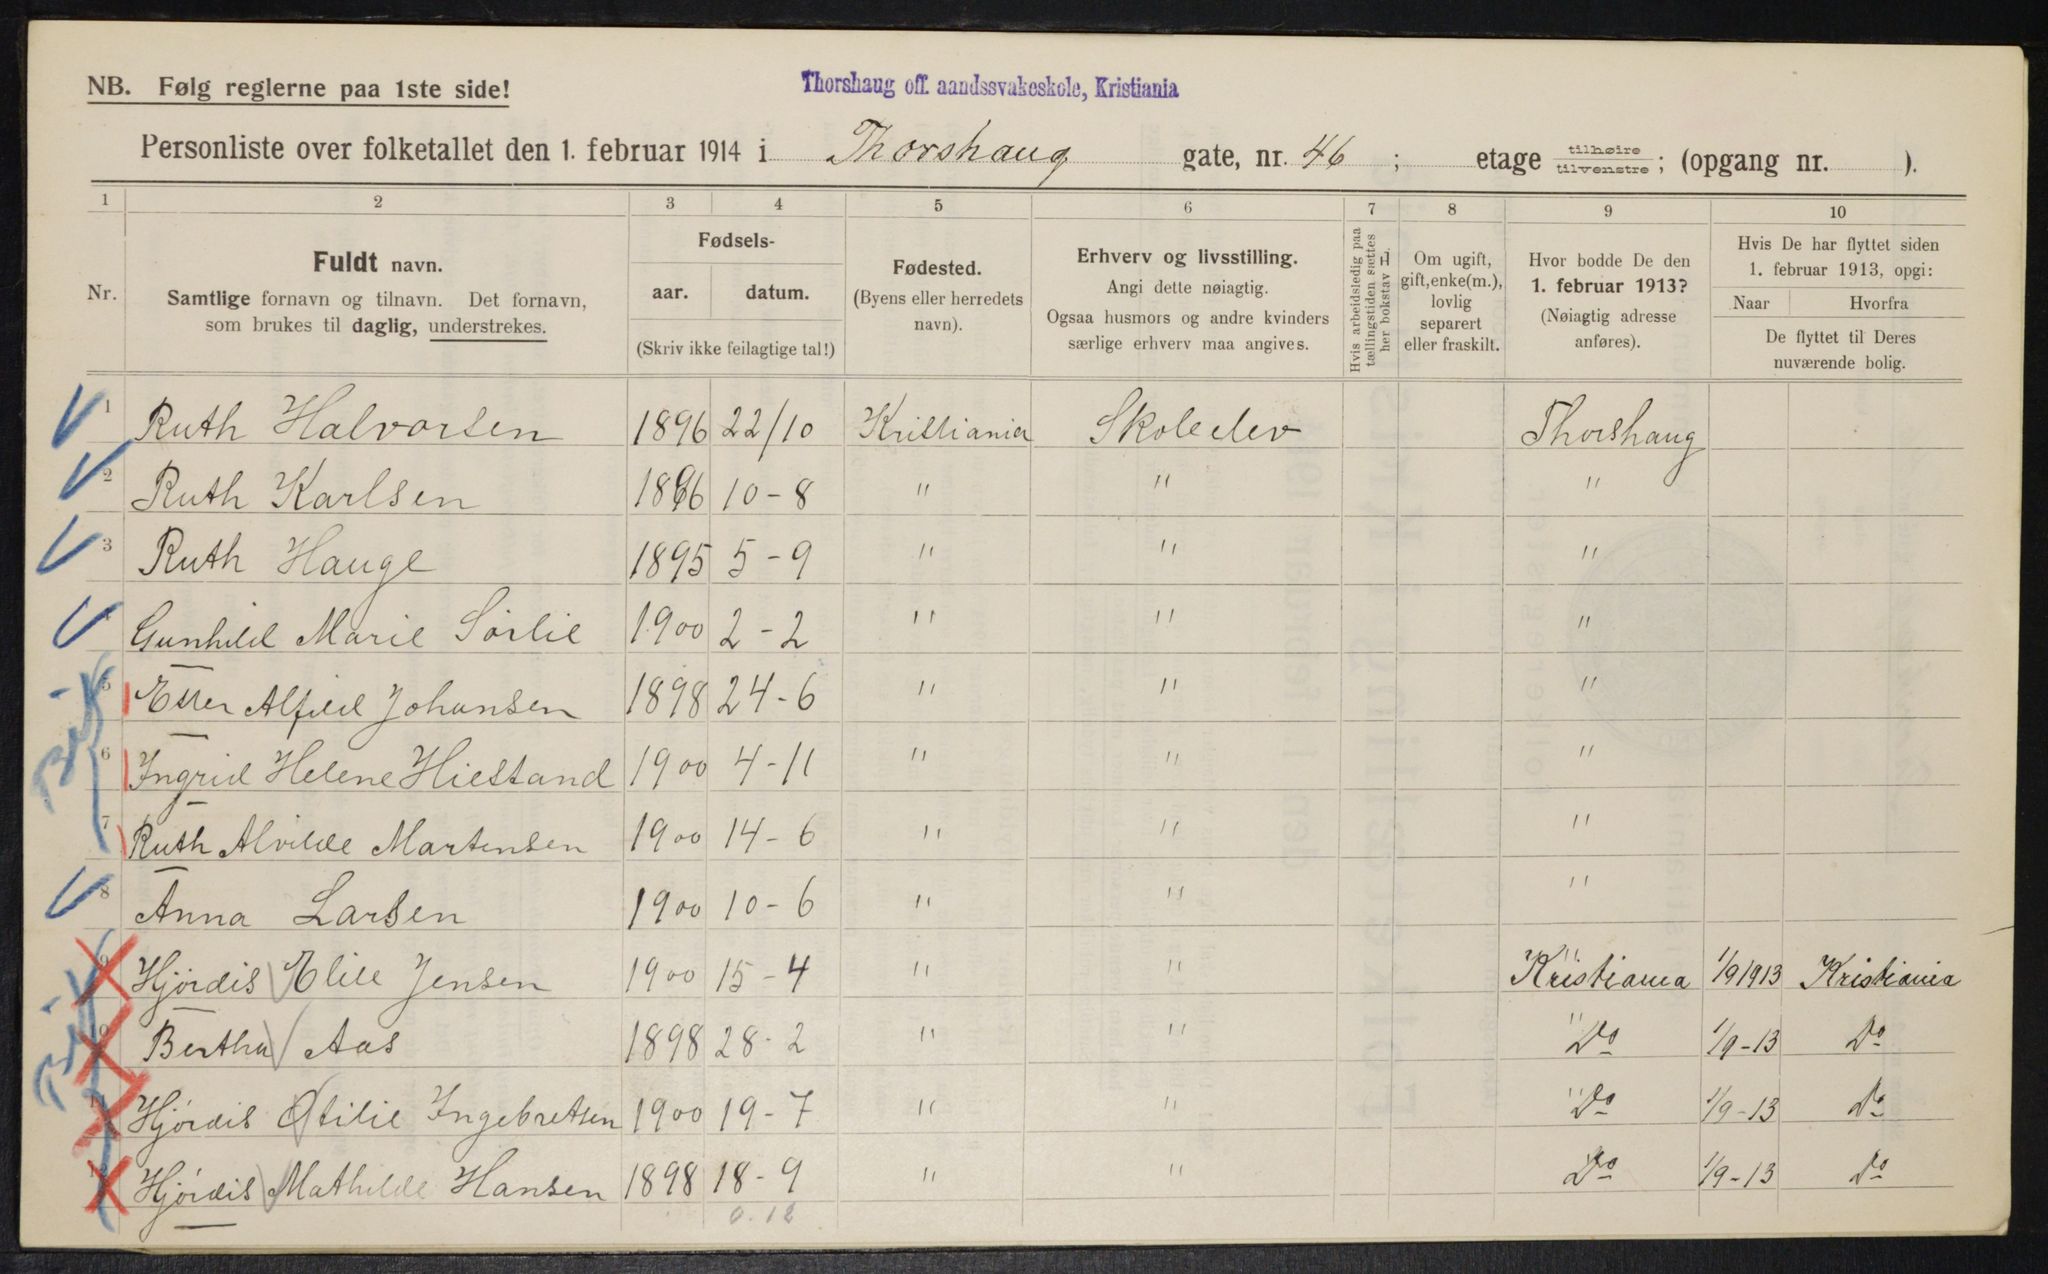 NB. Følg reglerne paa 1ste side!
Thorshaug off. aandssvakeskole, Kristiania
Personliste over folketallet den 1. februar 1914 i Thorshaug gate, nr. 46 ; etage tilhøire tilvenstre ; (opgang nr. ).
1 2 3 4 5 6 7 8 9 10
Nr.
Fuldt navn.
Samtlige fornavn og tilnavn. Det fornavn,
som brukes til daglig, understrekes.
Fødsels-
aar. datum.
(Skriv ikke feilagtige tal!)
Fødested.
(Byens eller herredets
navn).
Erhverv og livsstilling.
Angi dette nøiagtig.
Ogsaa husmors og andre kvinders
særlige erhverv maa angives.
Hvis arbeidsledig paa
tællingstiden sættes
her bokstav L.
Om ugift,
gift, enke(m.),
lovlig
separert
eller fraskilt.
Hvor bodde De den
1. februar 1913?
(Nøiagtig adresse
anføres).
Hvis De har flyttet siden
1. februar 1913, opgi:
Naar Hvorfra
De flyttet til Deres
nuværende bolig.
1 Ruth Halvorsen 1896 22/10 Kristiania Skoleelev Thorshaug
2 Ruth Karlsen 1896 10-8 " " "
3 Ruth Hauge 1895 5-9 " " "
4 Gunhild Marie Sørlie 1900 2-2 " " "
5 Ester Alfild Johansen 1898 24-6 " " "
6 Ingrid Helene Hiestand 1900 4-11 " " "
7 Ruth Alvilde Martensen 1900 14-6 " " "
8 Anna Larsen 1900 10-6 " " "
9 Hjørdis Elise Jensen 1900 15-4 " " Kristiania 1/9 1913 Kristiania
10 Bertha Aas 1898 28-2 " " Do 1/9-13 Do
11 Hjørdis Otilie Ingebretsen 1900 19-7 " " Do 1/9-13 Do
12 Hjørdis Mathilde Hansen 1898 18-9 " " Do 1/9-13 Do